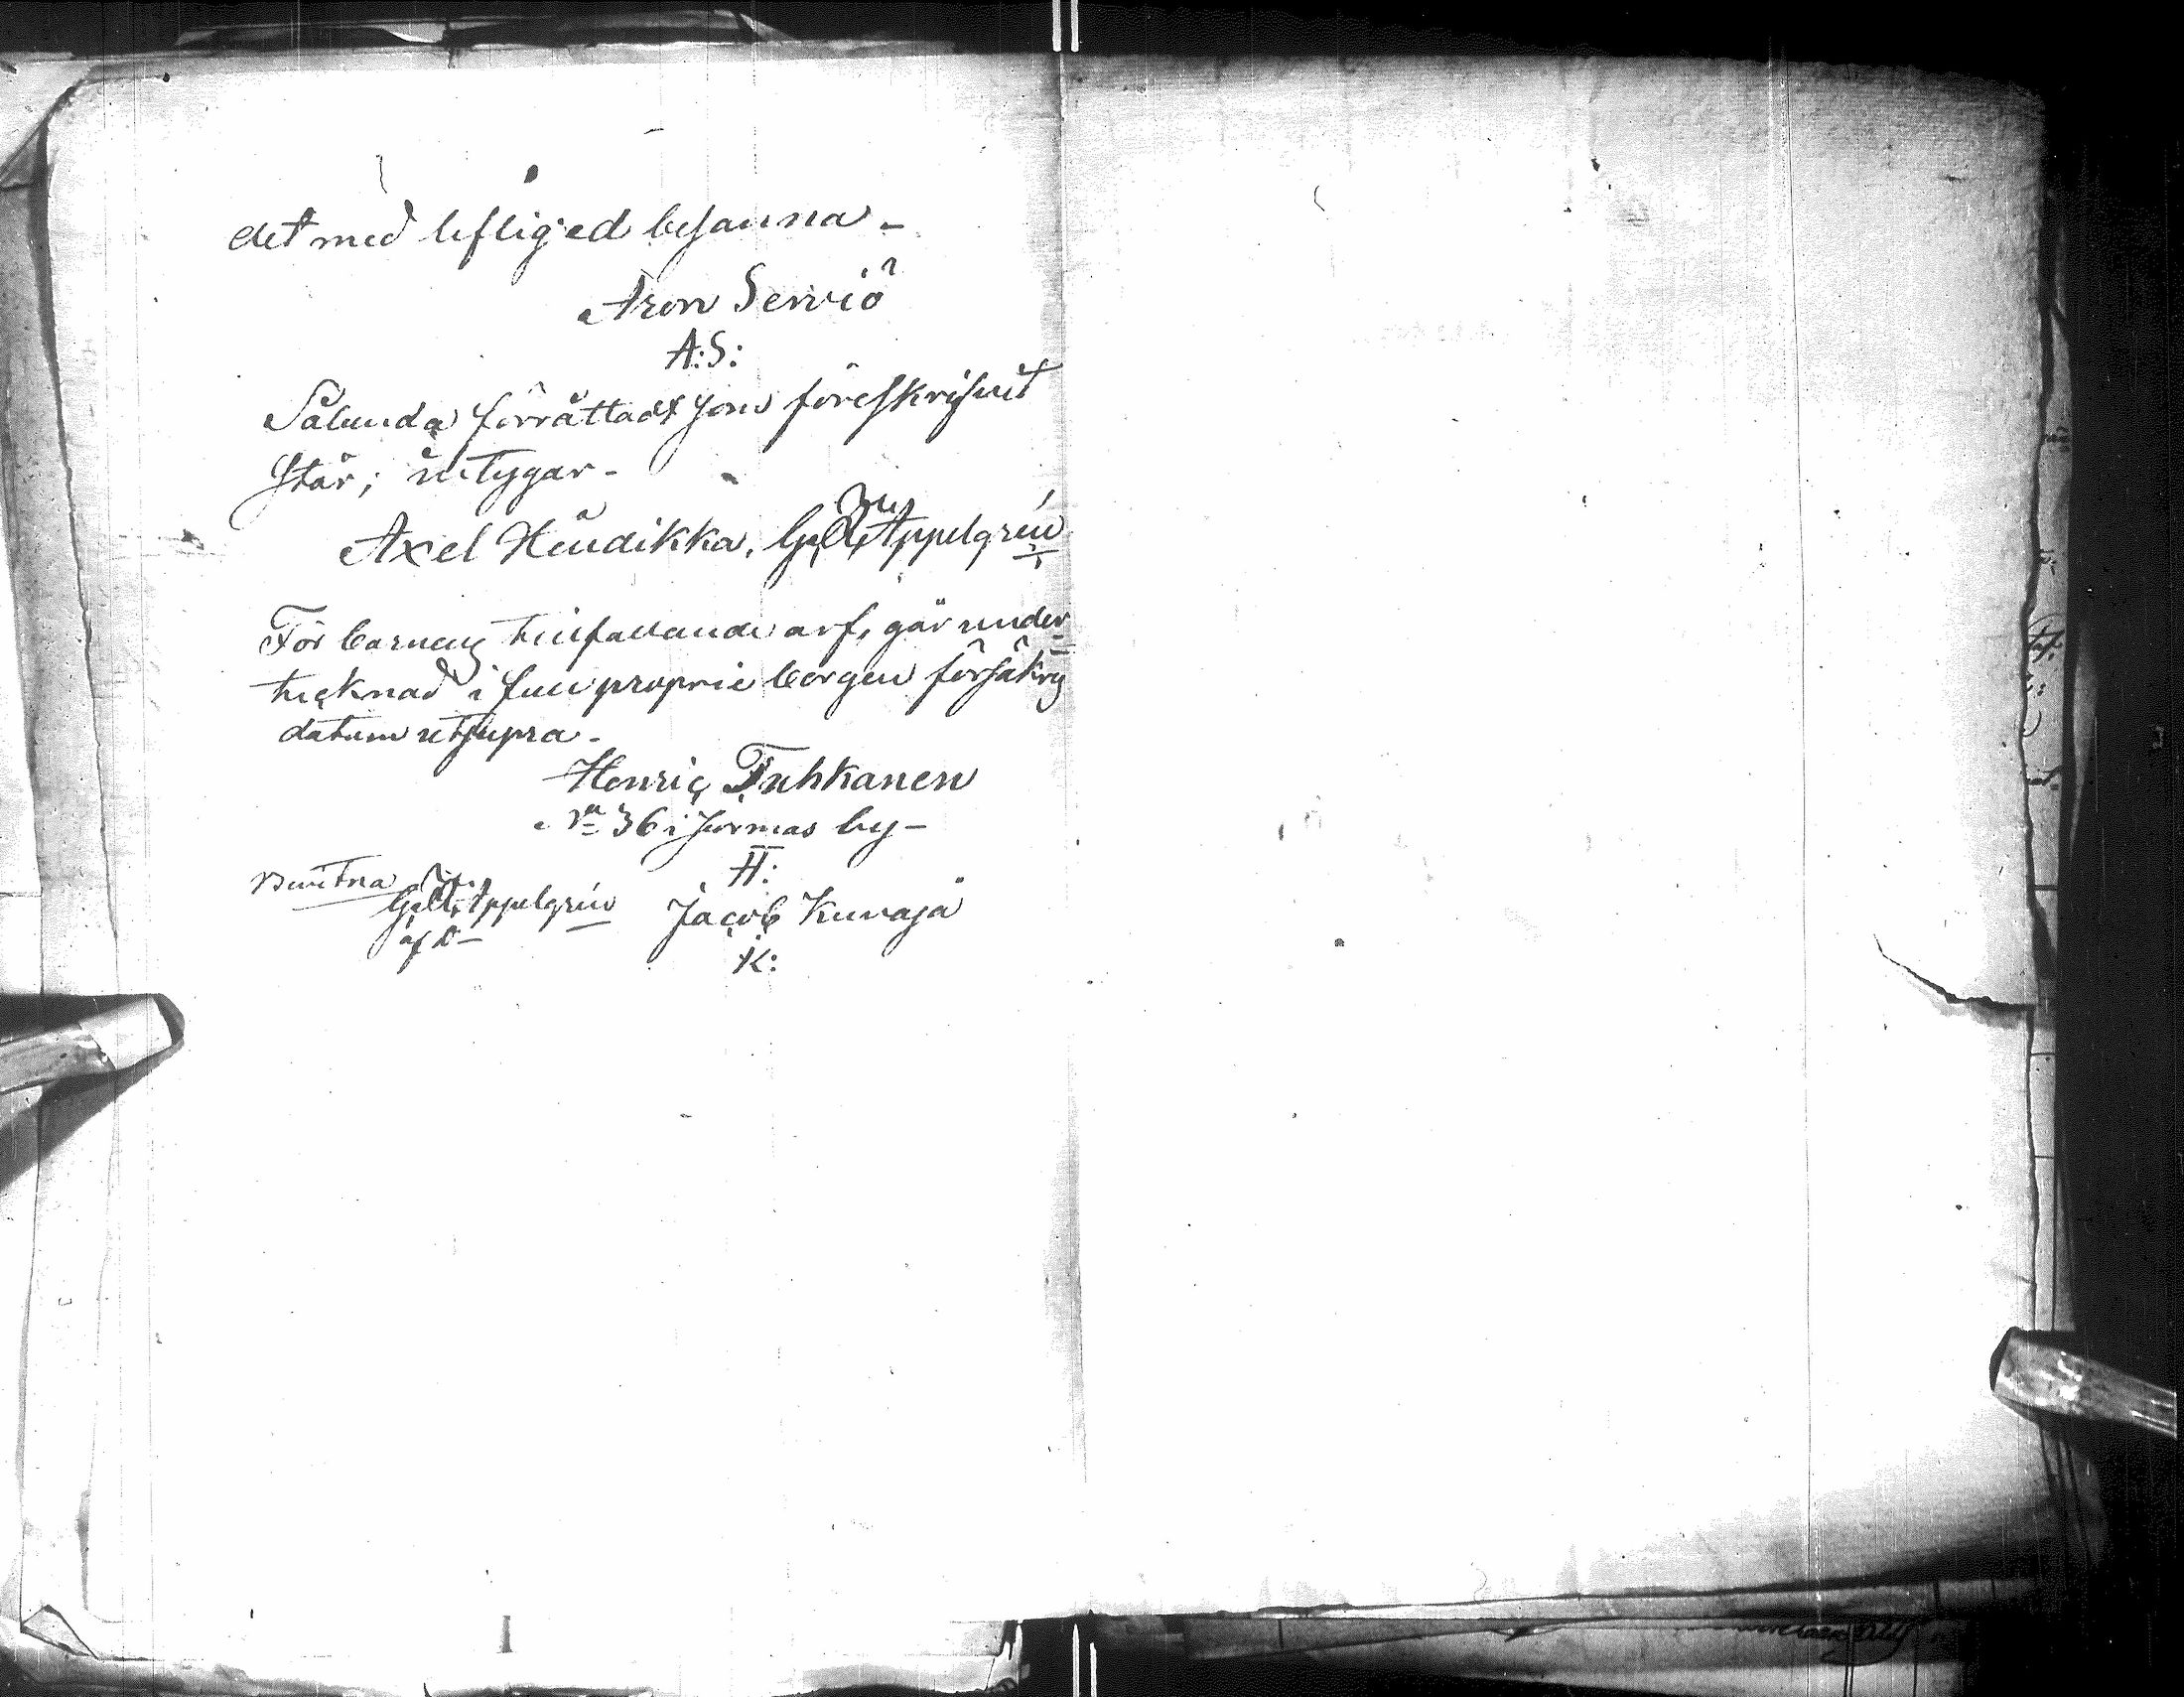 det med lifliged besanna -
Aron Serviö
A: S:
Sålunda förrättadt som föreskrifvit
står; intygar -
Axel Heudikka. Appelgrén
För barnens tillfallande arf, går under
tecknad i full proprie borgen försäkrs
datum ut supra -
Henric Tuhkanen
No 36 i Jurmas by -
H:
Bevitna
Appelgrén Jacob Kuvaja
af D -
K: